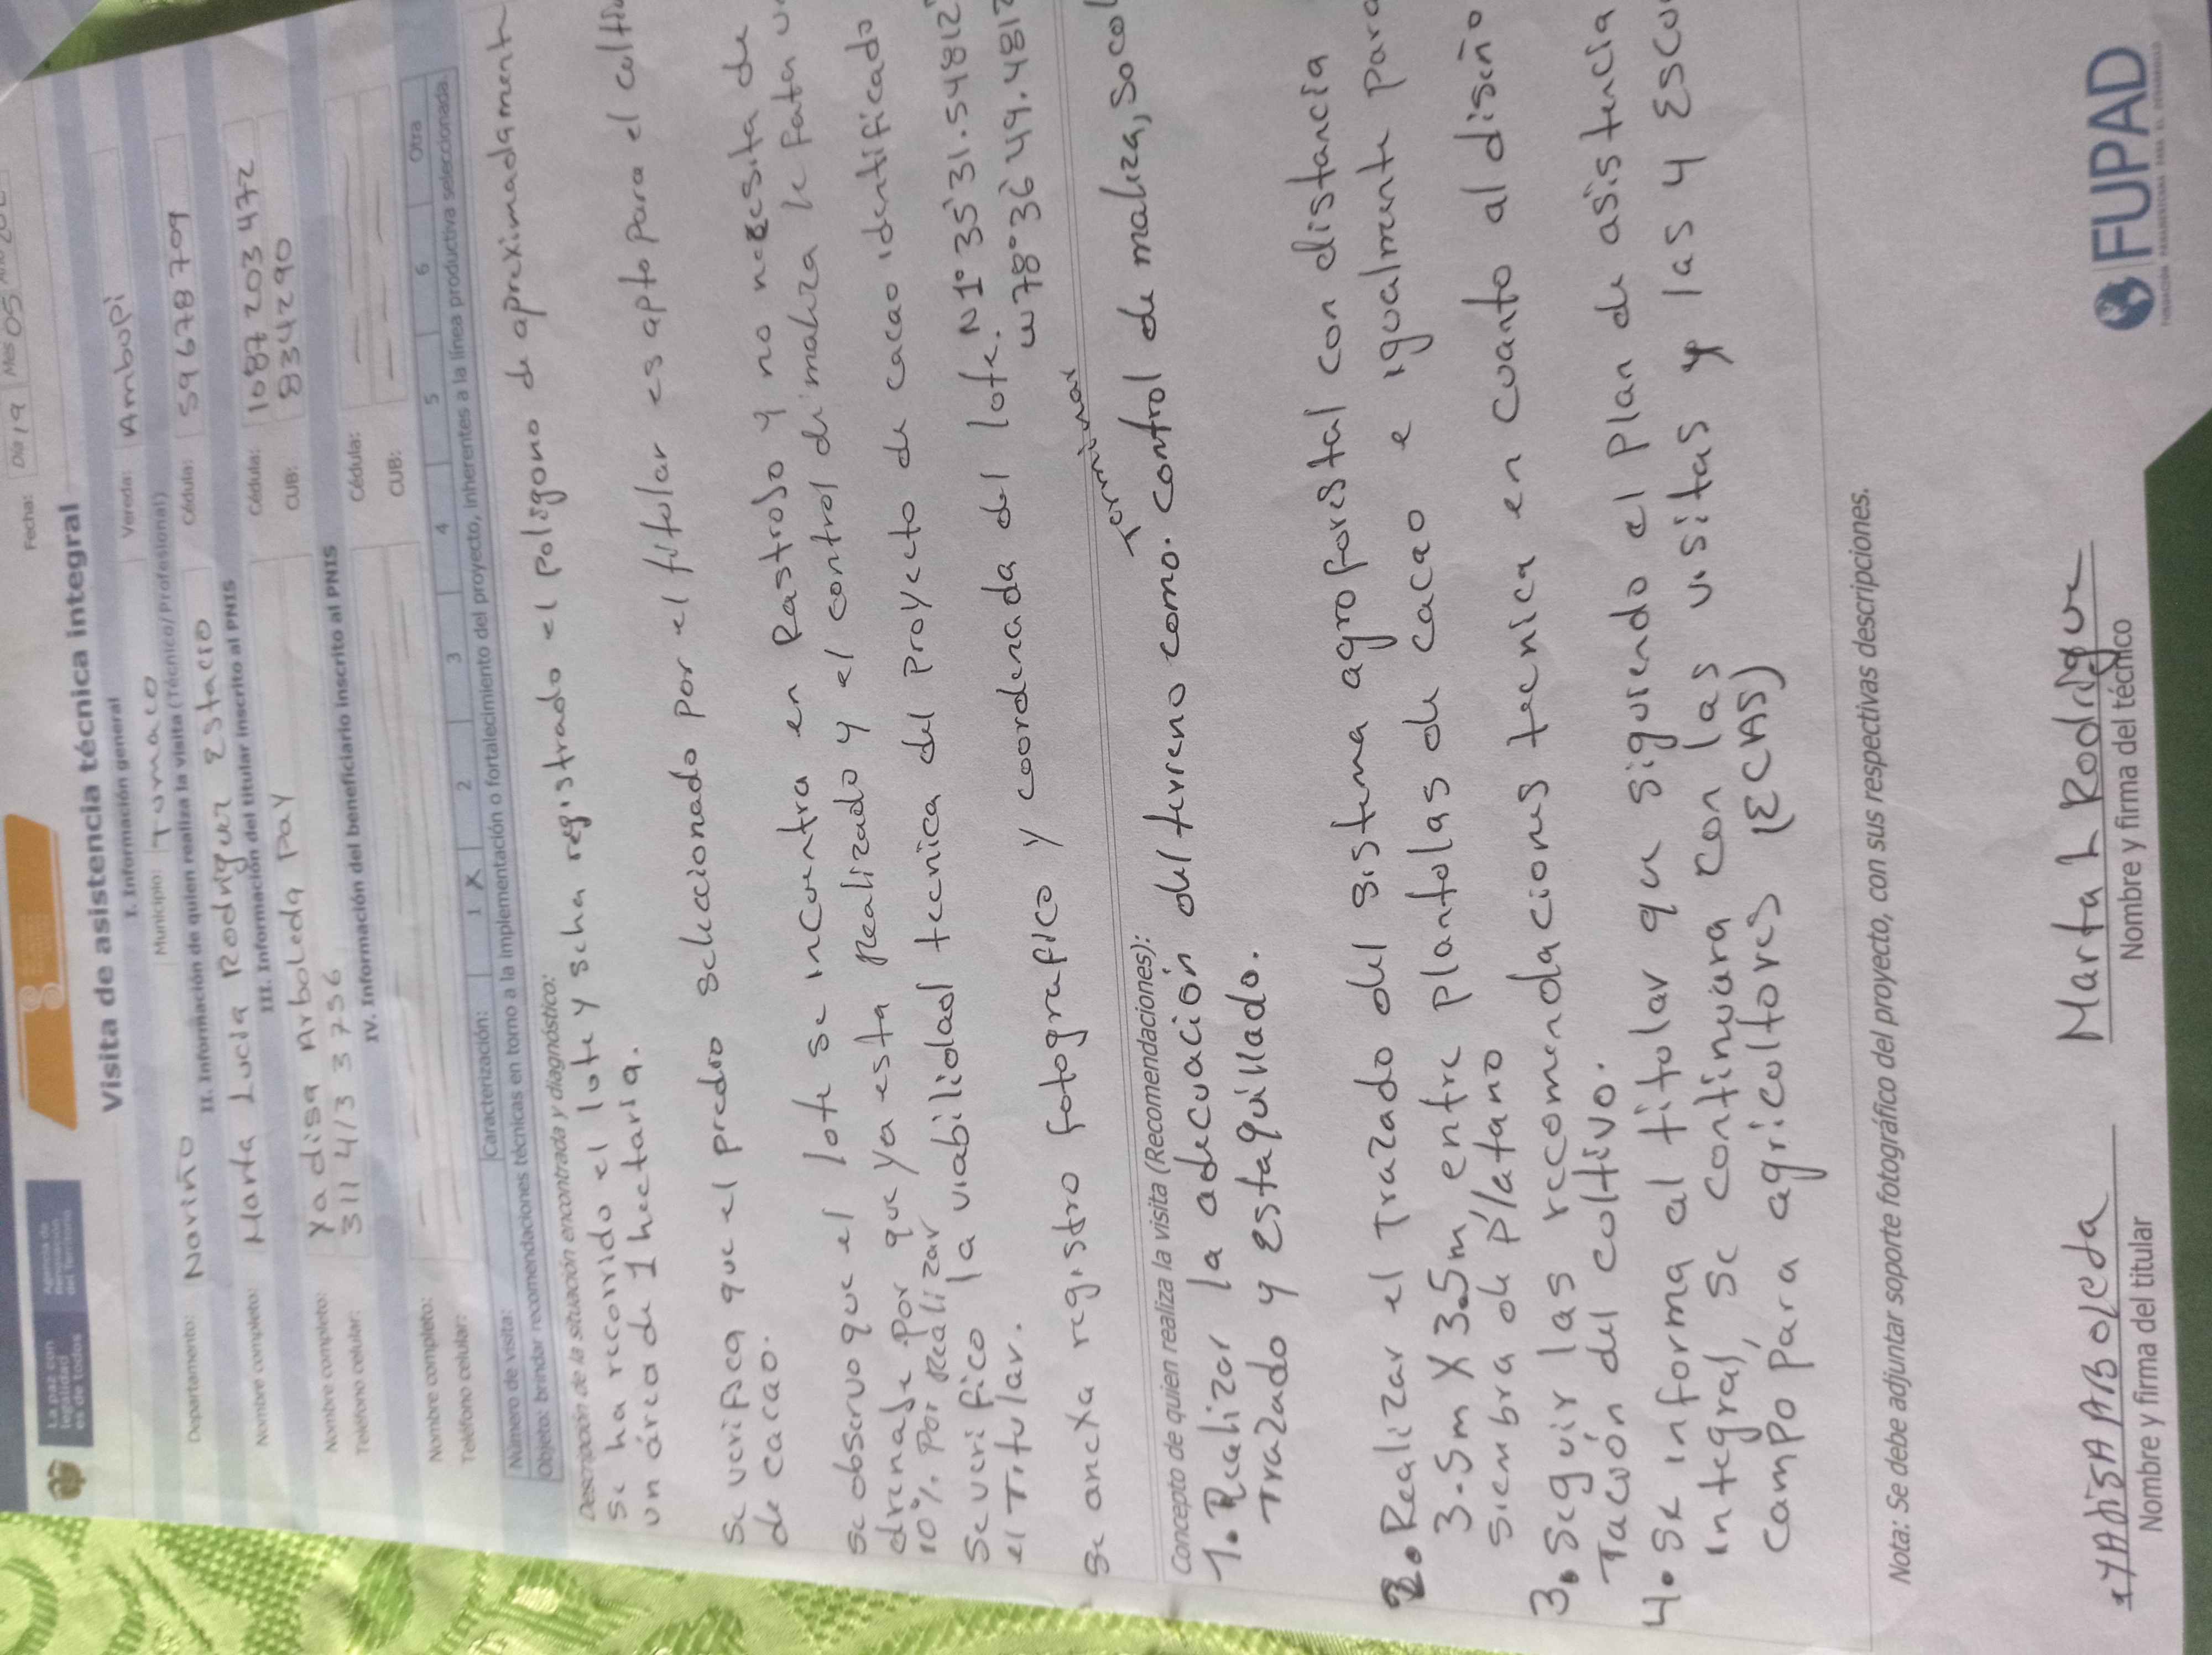 Fecha: Día 19 Mes 05 Año
La paz con legalidad es de todos
Agencia de Renovación del Territorio
Visita de asistencia técnica integral
I. Información general
Departamento: Nariño Municipio: Tumaco Vereda: Ambupi
II. Información de quien realiza la visita (Técnico/Profesional)
Nombre completo: Marta Lucia Rodriguez Estacio Cédula: 59678709
III. Información del titular inscrito al PNIS
Nombre completo: Yadisa Arboleda Pay Cédula: 1087203472
Teléfono celular: 311 413 3756 CUB: 834290
IV. Información del beneficiario inscrito al PNIS
Nombre completo: Cédula:
Teléfono celular: CUB:
Número de visita: Caracterización: 1 X 2 3 4 5 6 Otra
Objeto: brindar recomendaciones técnicas en torno a la implementación o fortalecimiento del proyecto, inherentes a la línea productiva seleccionada.
Descripción de la situación encontrada y diagnóstico:
Se ha recorrido el lote y seha registrado el poligono de apreximadament
un área de 1 hectaria.
Se verifica que el predio seleccionado por el titular es apto para el cultiv
de cacao.
Se observo que el lote se incuentra en Rastrojo y no necesita de
drenaje Por que ya esta Realizado y el control di maliza le fata u
10% Por Realizar
Se verifico la viabilidad tecnica del Proyecto de cacao identificado
el Titular.
Se anexa registro fotografico y coordenada del lote. N1°35'31.54812"
w78°36'49.4812
Concepto de quien realiza la visita (Recomendaciones):
Terminar
1. Realizar la adecuación del terreno como. control de maliza, socol
Trazado y estaquillado.
2. Realizar el Trazado del sistema agroforestal con distancia
3.5m X 3.5m entre plantolas de cacao e igualmente para
siembra de platano
3. Seguir las recomendaciones tecnica en cuanto al diseño
Tación del coltivo.
4. Se informa al titolar que siguiendo el plan de asistencia
integral, se continuara con las visitas y las 4 Escu
campo para agricoltores (ECAS)
Nota: Se debe adjuntar soporte fotográfico del proyecto, con sus respectivas descripciones.
YAdiSA ARBoleda
Nombre y firma del titular
Marta L Rodrigue
Nombre y firma del técnico
FUPAD
FUNDACIÓN PANAMERICANA PARA EL DESARROLLO